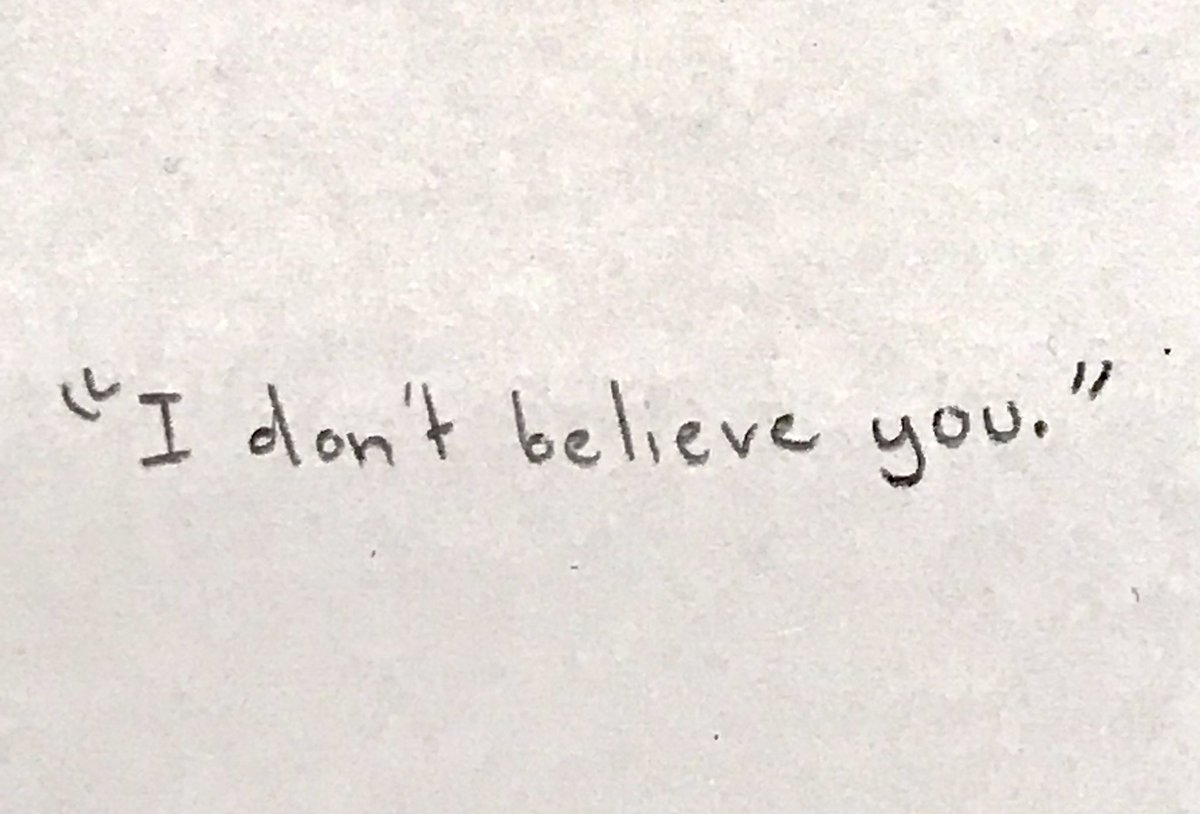 "I don't believe you."